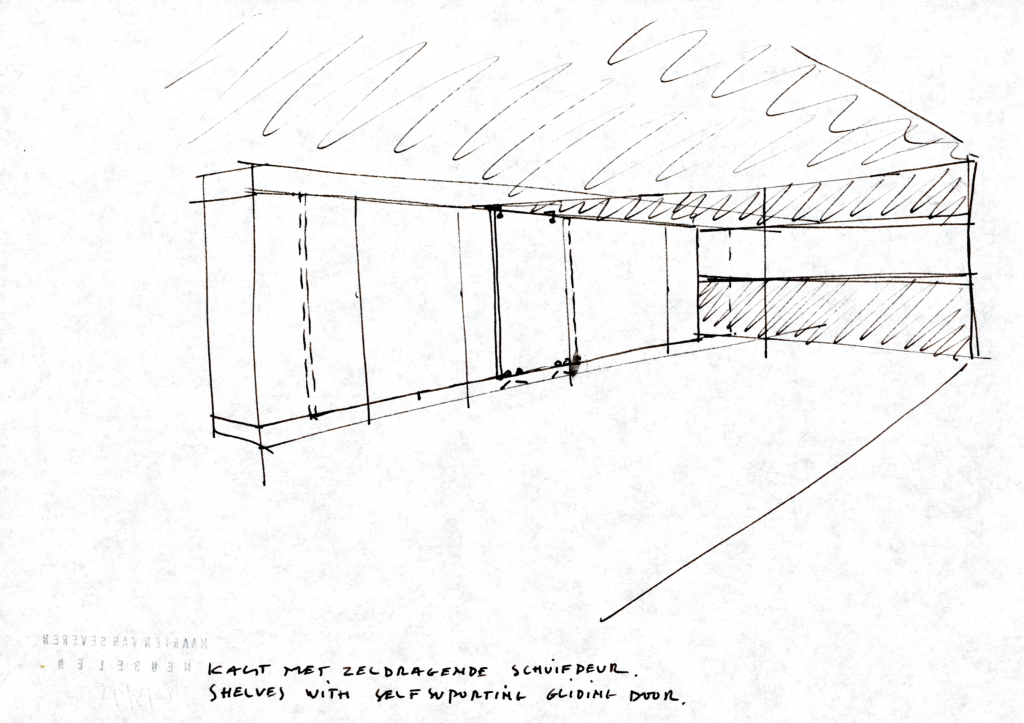 MAARTEN VAN SEVEREN
MEUBELEN
KAST MET ZELDRAGENDE SCHUIFDEUR.
SHELVES WITH SELF SUPORTING GLIDING DOOR.